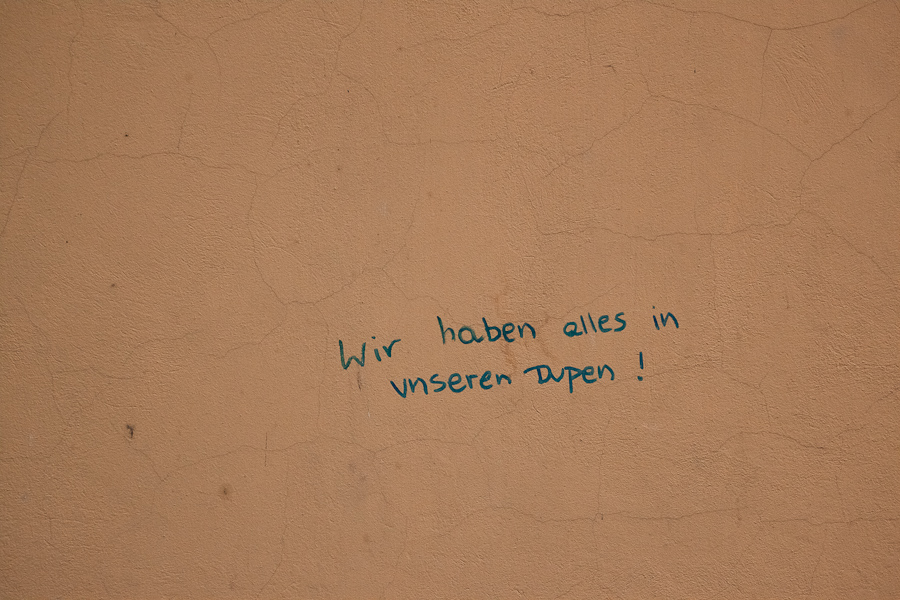 Wir haben alles in
unseren Dupen !